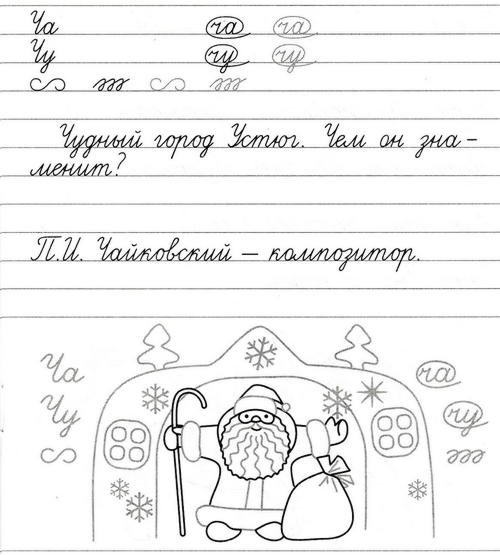 Ча ча ча
Чу чу чу
Чудный город Устюг. Чем он зна-
менит?
П.И. Чайковский — композитор.
Ча ча
Чу чу